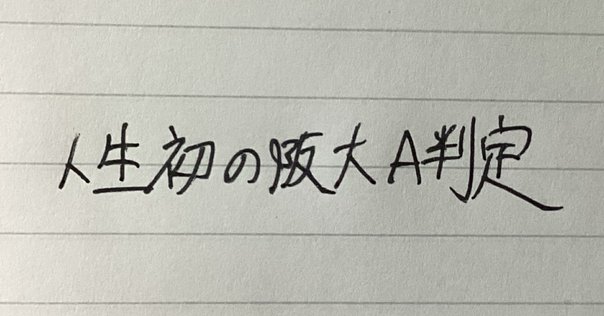 人生初の阪大A判定